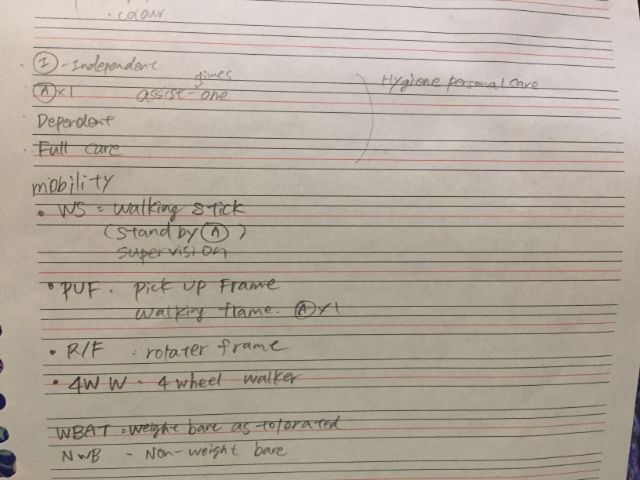 · colour
Ⓘ - Independent
times
Ⓐ x 1 assist - one
Hygione personal care
Dependent
Full care
mobility
• WS = walking stick
(Stand by Ⓐ)
supervision
• PUF. pick up Frame
walking frame. Ⓐ x 1
• R/F : rotater frame
• 4WW - 4 wheel walker
WBAT = weight bare as-tolorated
NWB - Non-weight bare